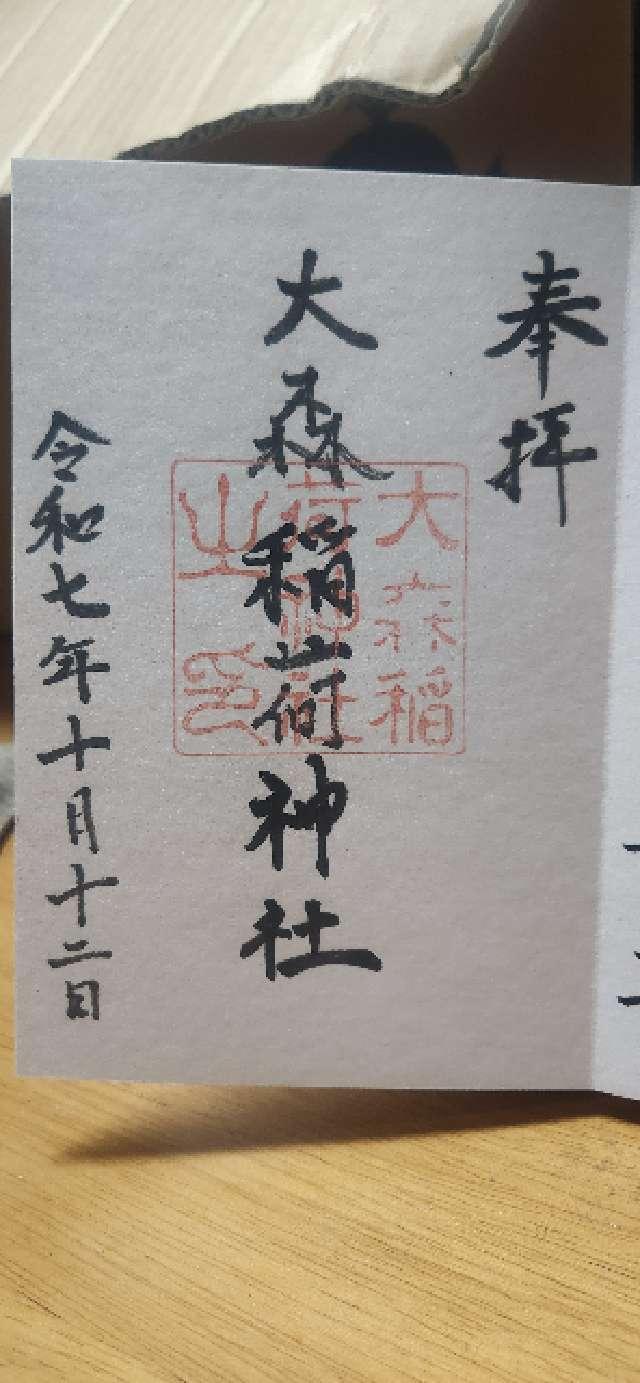 奉拝
大森稲荷神社
大森稲
荷神社
之印
令和七年十月十二日